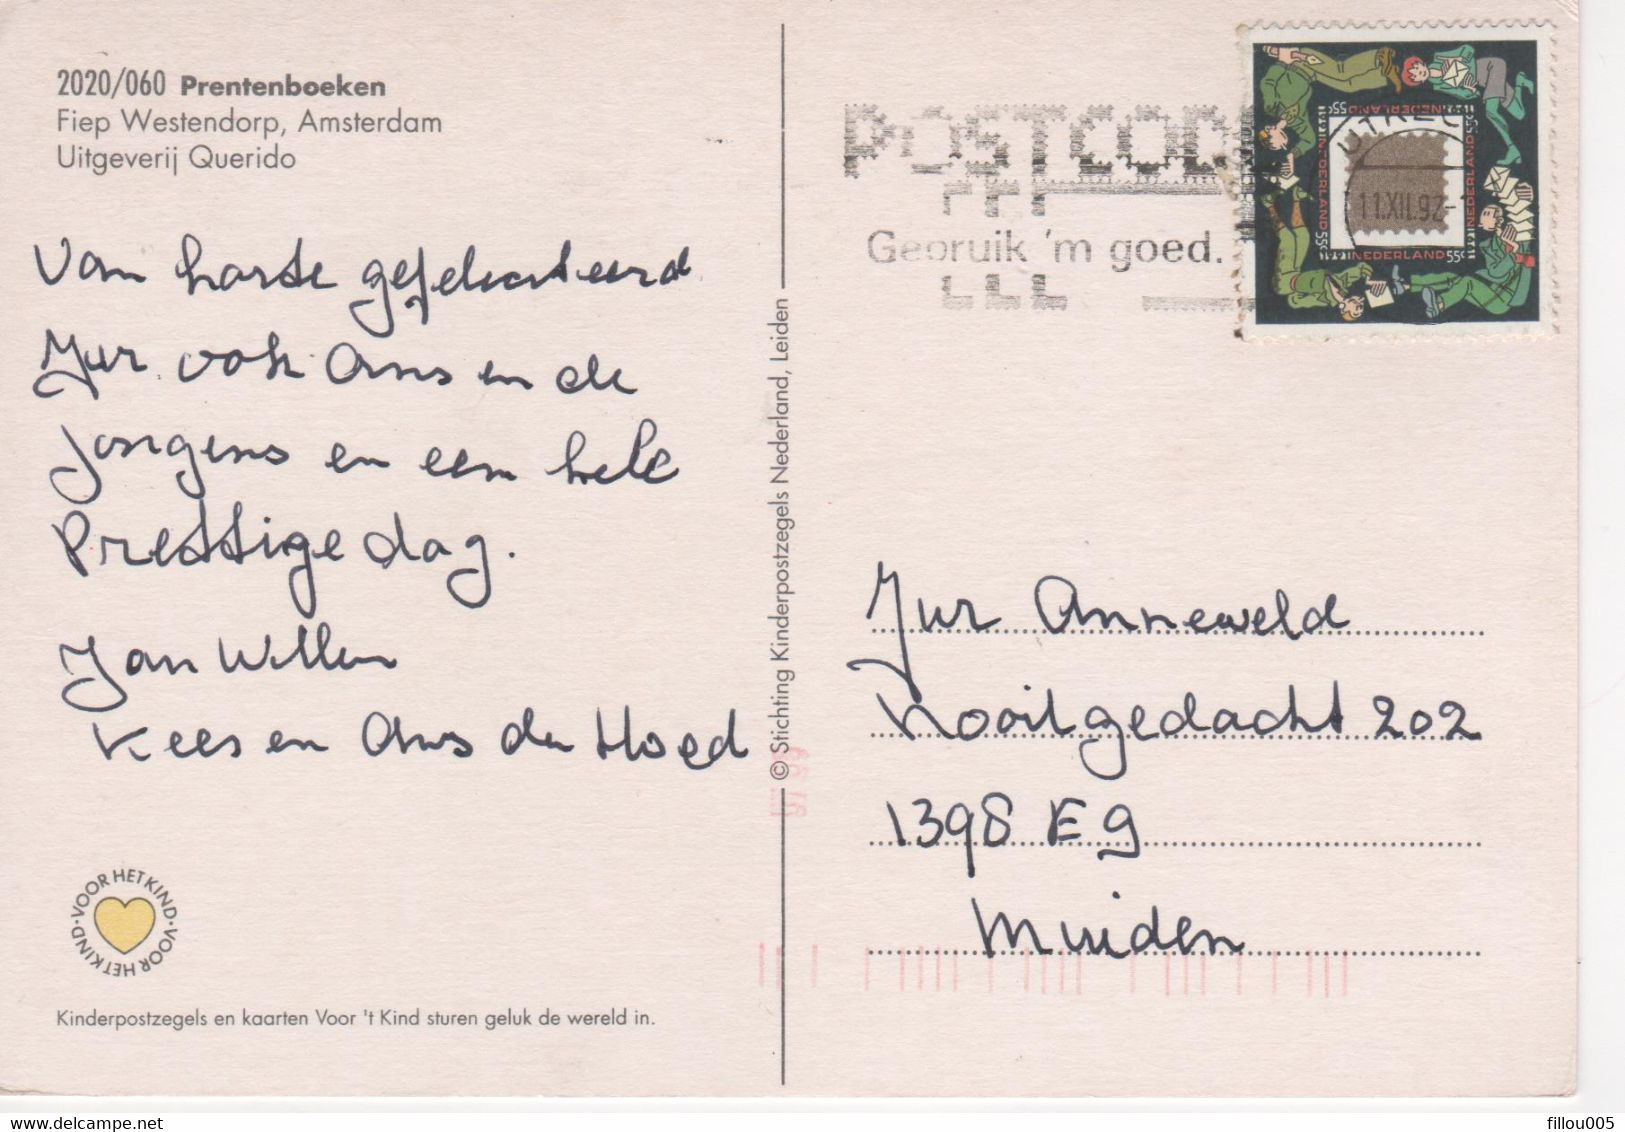 2020/060 Prentenboeken
Fiep Westendorp, Amsterdam
Uitgeverij Querido
Van harte gefeliciteerd
Jur ook Ans en de
jongens en een hele
Prettige dag.
Jan Willem
Kees en Ans den Hoed
VOOR HET KIND · VOOR HET KIND ·
Kinderpostzegels en kaarten Voor 't Kind sturen geluk de wereld in.
© Stichting Kinderpostzegels Nederland, Leiden
POSTCODE
Gebruik 'm goed.
UTREC
11.XII.92-
NEDERLAND 55c
NEDERLAND 55c
NEDERLAND 55c
NEDERLAND 55c
Jur Anneveld
Nooitgedacht 202
1398 EG
Muiden
fillou005